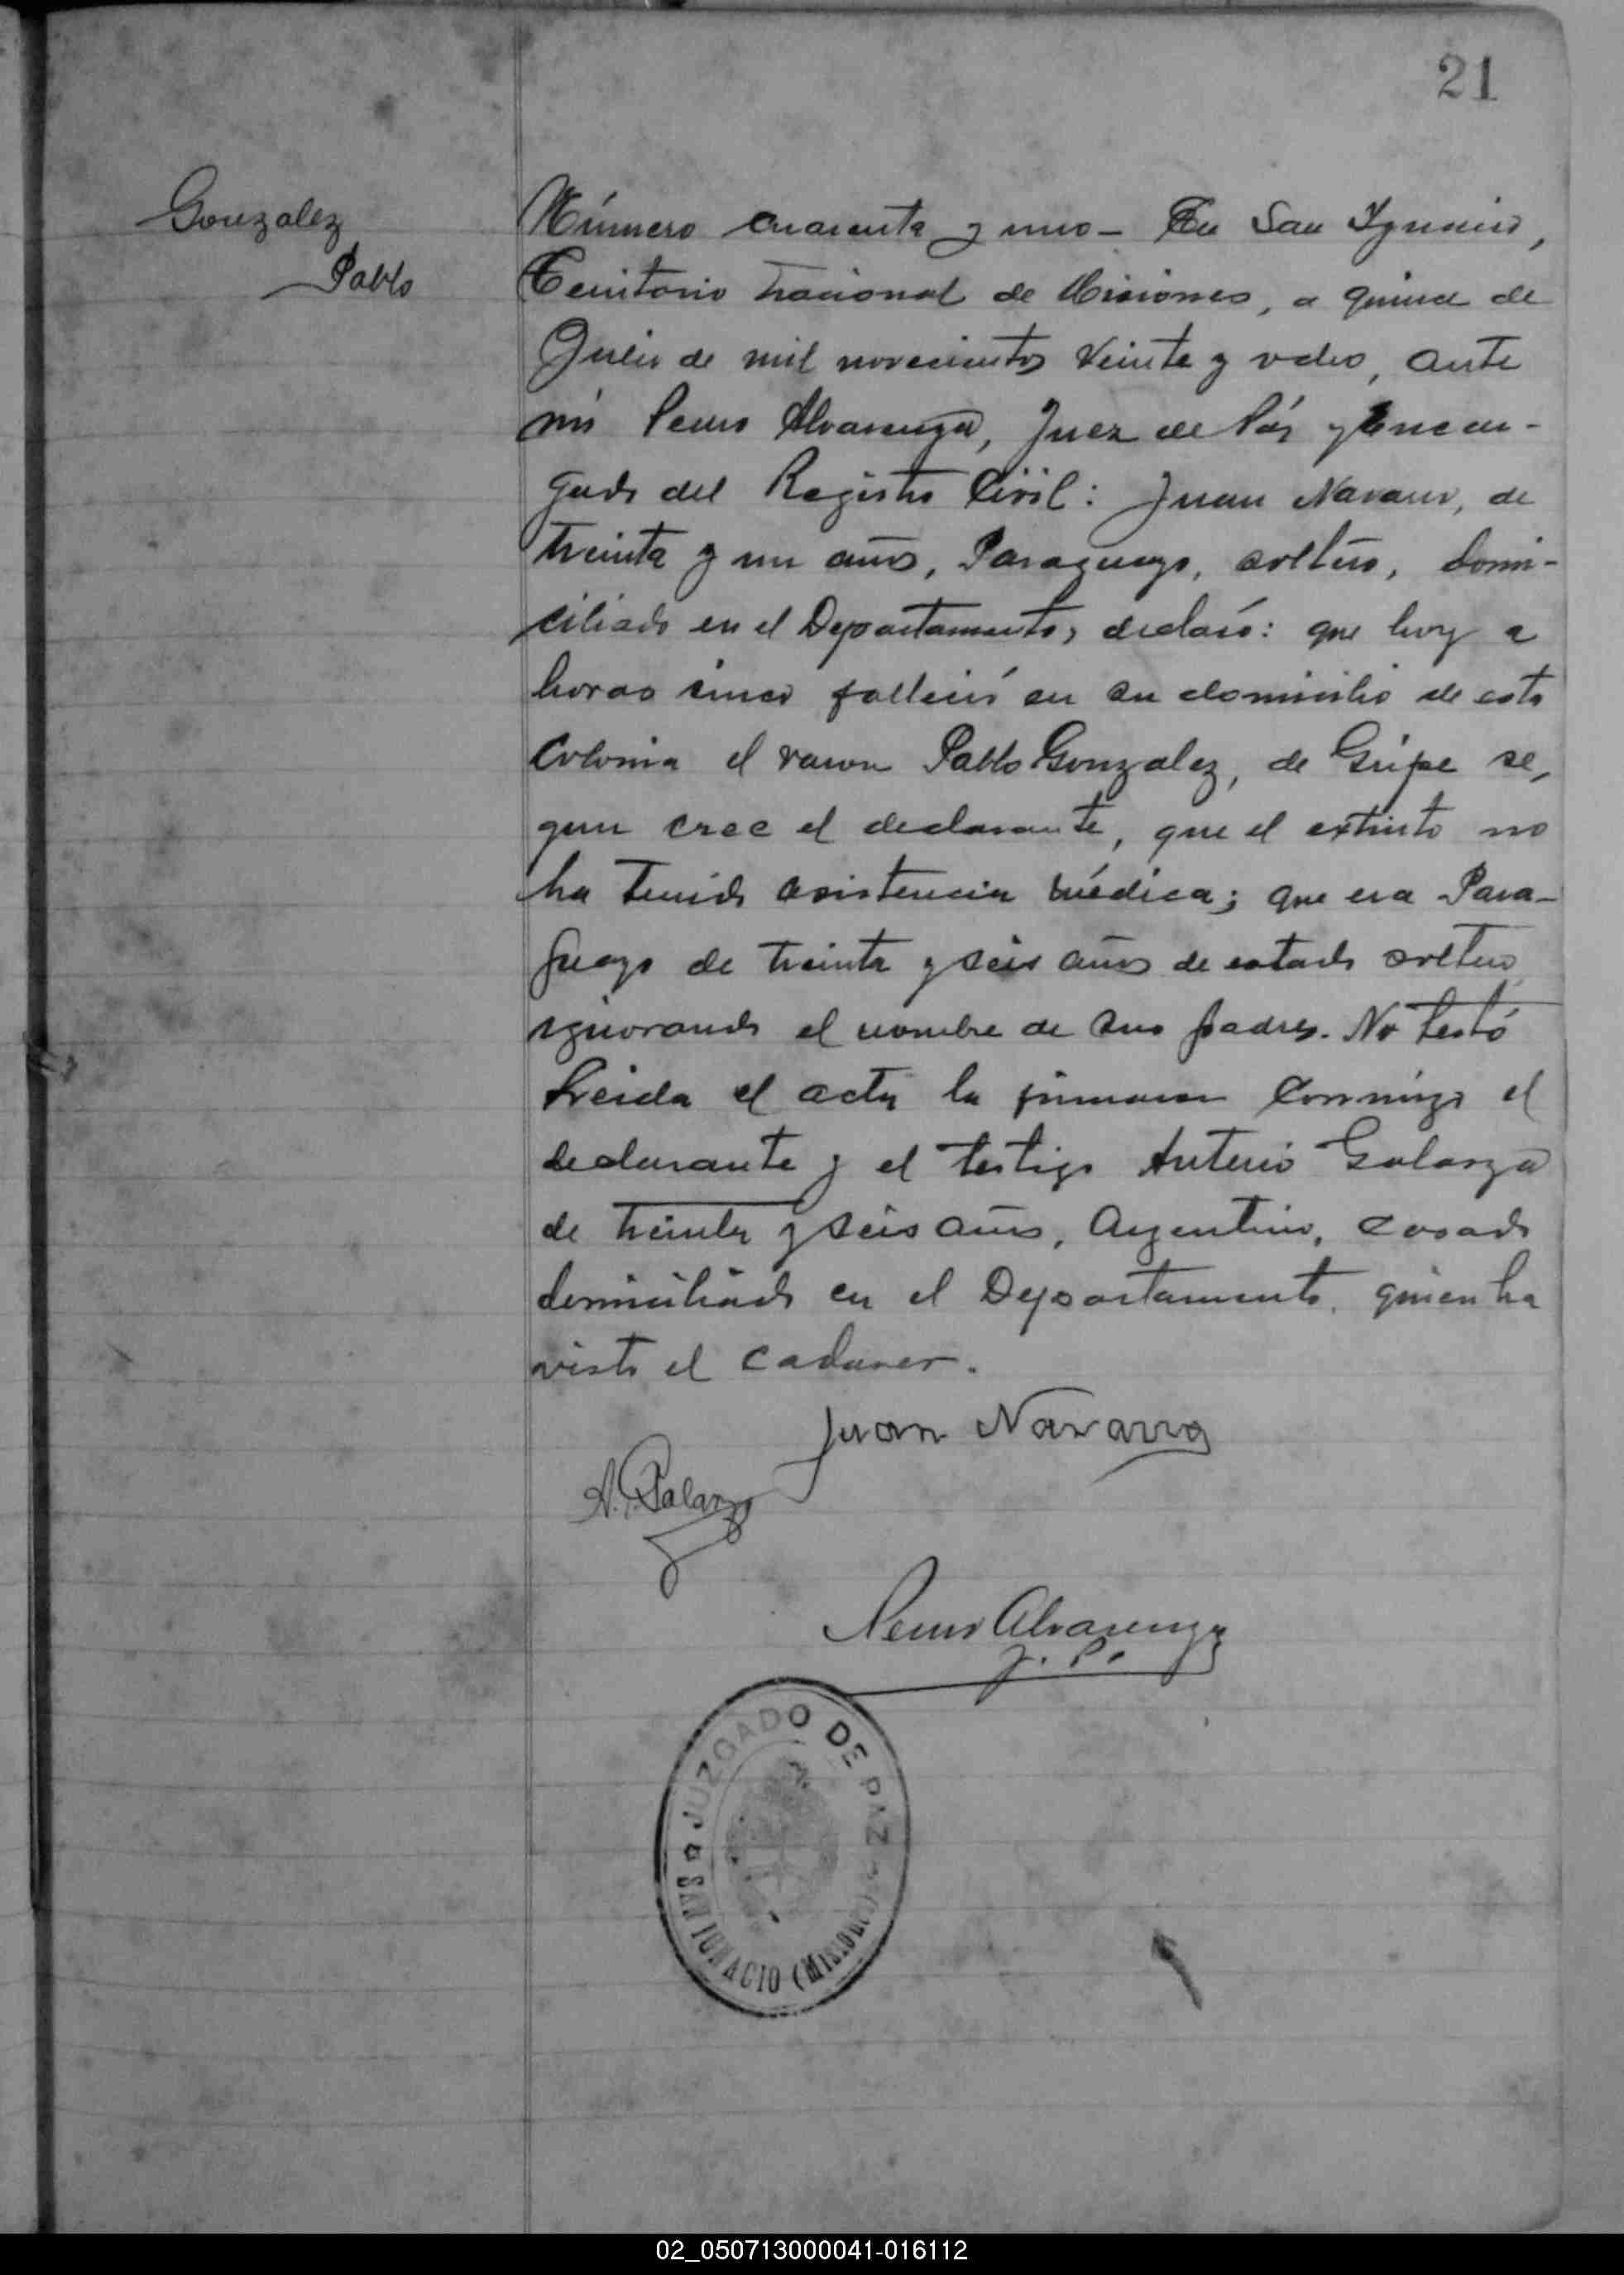 21
Gonzalez
Pablo
Número cuarenta y uno - En San Ygnacio,
Territorio Nacional de Misiones, a quince de
Julio de mil novecientos veinte y ocho, ante
mi Pedro Alvarenga, Juez de Páz y Encar-
gado del Registro Civil: Juan Navarro, de
treinta y un años, Paraguayo, soltero, domi-
ciliado en el Departamento, declaró: que hoy a
horas cinco falleció en su domicilio de esta
Colonia el varon Pablo Gonzalez, de Gripe se,
gun cree el declarante, que el extinto no
ha tenido asistencia médica; que era Para-
guayo de treinta y seis años de estado soltero
ignorando el nombre de sus padres. No testó
Leida el acta la firmaron conmigo el
declarante y el testigo Anterio Galarza
de treinta y seis años, Argentino, casado
domiciliado en el Departamento, quien ha
visto el cadaver.
Juan Navarro
A. Galarza
Alvarenga
J. P.
JUZGADO DE PAZ
SAN IGNACIO (MISIONES)
02_050713000041-016112